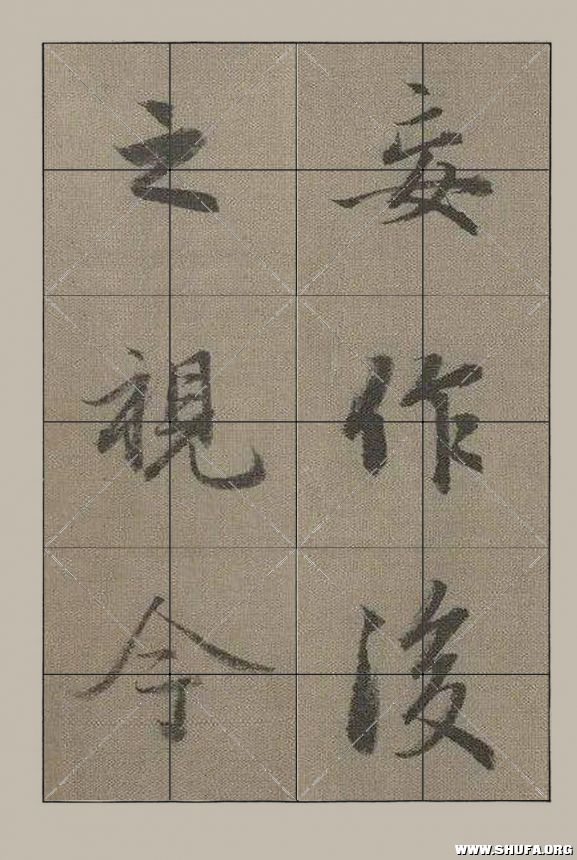 妄作後
之視今
WWW.SHUFA.ORG